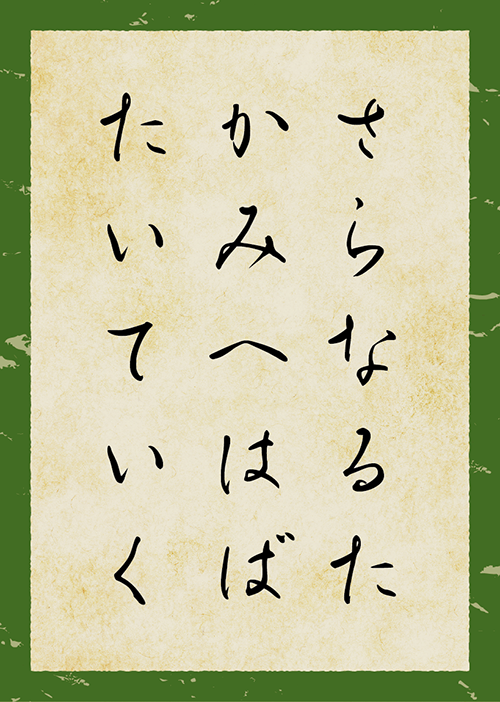 さらなるた
かみへはば
たいていく